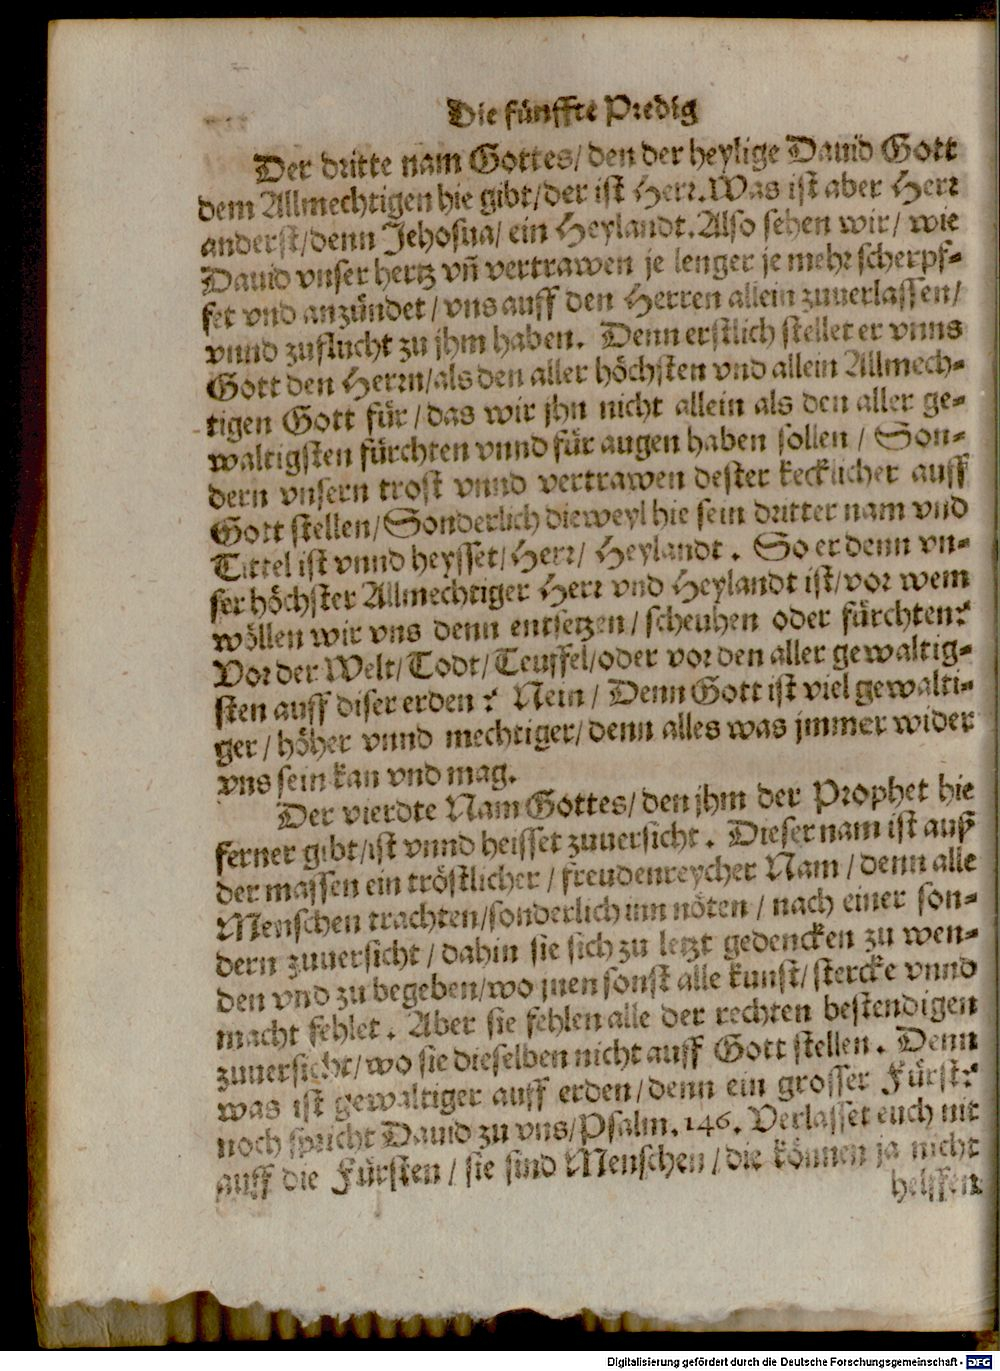 Die fünffte Predig
Der dritte nam Gottes/ den der heylige Dauid Gott
dem Allmechtigen hie gibt/ der ist Herr. Was ist aber Herr
anderst/ denn Jehosua/ ein Heylandt. Also sehen wir/ wie
Dauid vnser hertz vñ vertrawen je lenger je mehr scherpf-
fet vnd anzündet/ vns auff den Herren allein zuuerlassen/
vnnd zuflucht zu jhm haben. Denn erstlich stellet er vnns
Gott den Herrn/ als den aller höchsten vnd allein Allmech-
tigen Gott für/ das wir jhn nicht allein als den aller ge-
waltigsten fürchten vnnd für augen haben sollen/ Son-
dern vnsern trost vnnd vertrawen dester kecklicher auff
Gott stellen/ Sonderlich dieweyl hie sein dritter nam vnd
Tittel ist vnnd heysset/ Herr/ Heylandt. So er denn vn-
ser höchster Allmechtiger Herr vnd Heylandt ist/ vor wem
wöllen wir vns denn entsetzen/ scheuhen oder fürchten?
Vor der Welt/ Todt/ Teuffel/ oder vor den aller gewaltig-
sten auff diser erden? Nein/ Denn Gott ist viel gewalti-
ger/ höher vnnd mechtiger/ denn alles was jmmer wider
vns sein kan vnd mag.
Der vierdte Nam Gottes/ den jhm der Prophet hie
ferner gibt/ ist vnnd heisset zuuersicht. Dieser nam ist auß
der massen ein tröstlicher/ freudenreycher Nam/ denn alle
Menschen trachten/ sonderlich inn nöten/ nach einer son-
dern zuuersicht/ dahin sie sich zu letzt gedencken zu wen-
den vnd zu begeben/ wo jnen sonst alle kunst/ stercke vnnd
macht fehlet. Aber sie fehlen alle der rechten bestendigen
zuuersicht/ wo sie dieselben nicht auff Gott stellen. Denn
was ist gewaltiger auff erden/ denn ein grosser Fürst?
noch spricht Dauid zu vns/ Psalm. 146. Verlasset euch nit
auff die Fürsten/ sie sind Menschen/ die können ja nicht
helffen.
Digitalisierung gefördert durch die Deutsche Forschungsgemeinschaft - DFG